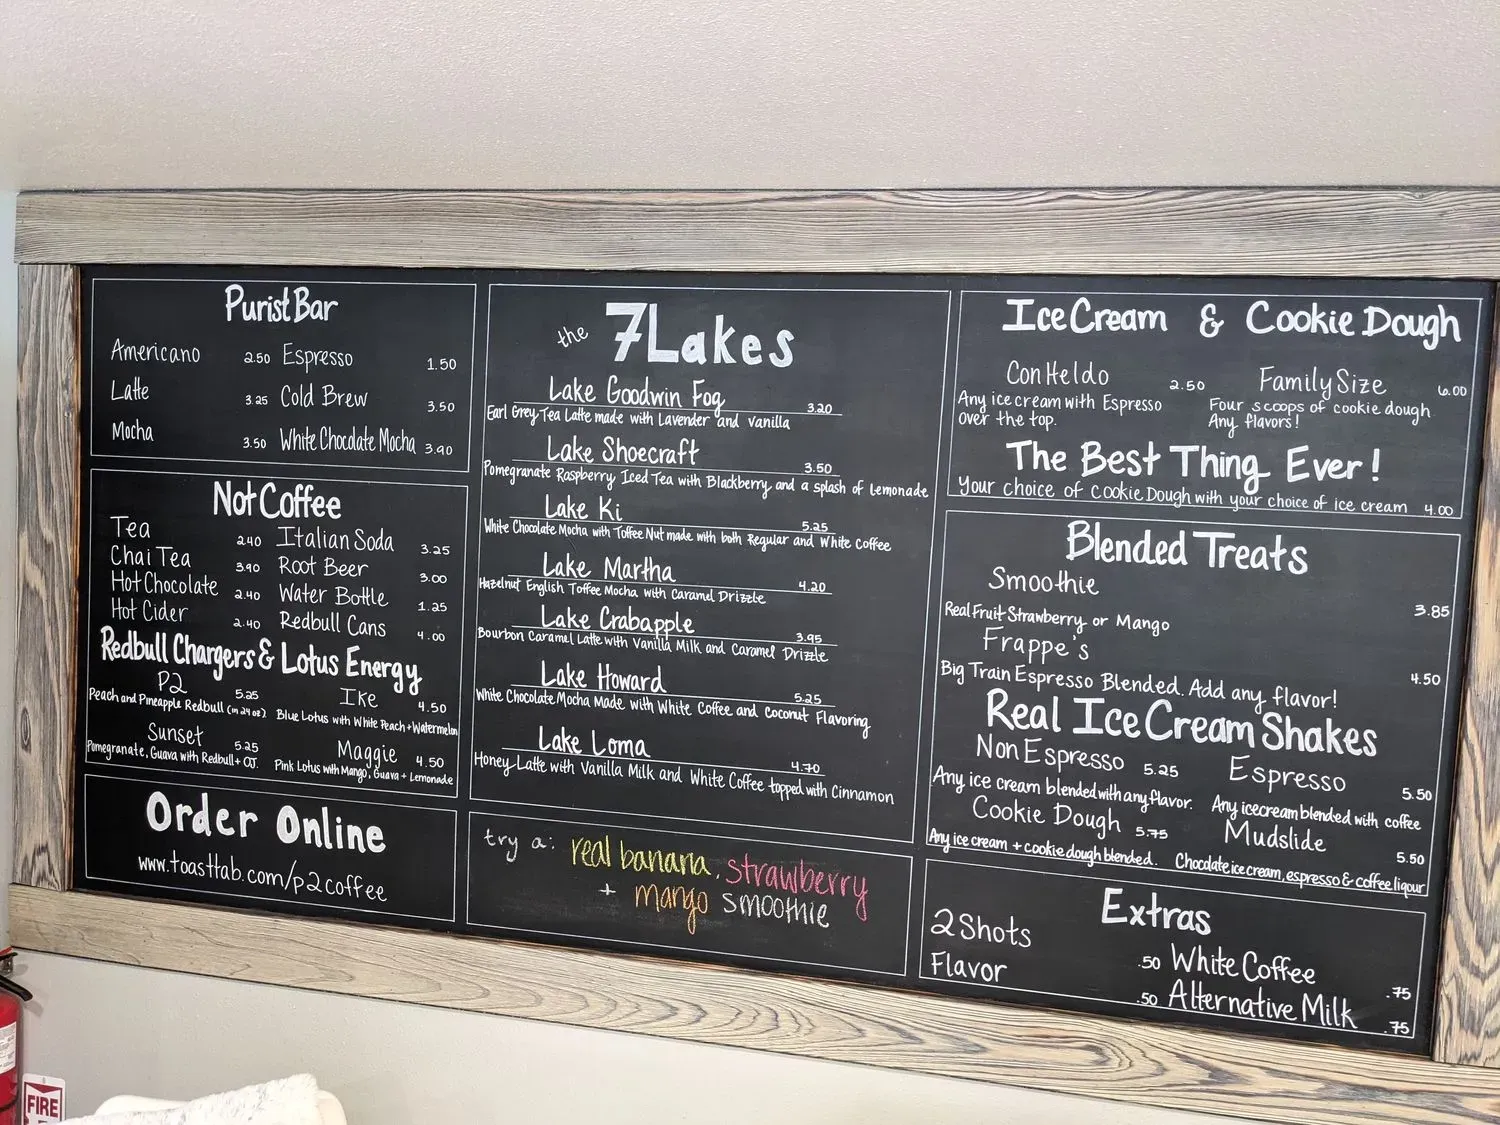 Purist Bar
Americano 2.50 Espresso 1.50
Latte 3.25 Cold Brew 3.50
Mocha 3.50 White Chocolate Mocha 3.90
Not Coffee
Tea 2.40 Italian Soda 3.25
Chai Tea 3.90 Root Beer 3.00
Hot Chocolate 2.40 Water Bottle 1.25
Hot Cider 2.40 Redbull Cans 4.00
Redbull Chargers & Lotus Energy
P2 5.25 Ike 4.50
Peach and Pineapple Redbull (in 24 oz) Blue Lotus with White Peach + Watermelon
Sunset 5.25 Maggie 4.50
Pomegranate, Guava with Redbull + OJ. Pink Lotus with Mango, Guava + Lemonade
Order Online
www.toasttab.com/p2coffee
the 7 Lakes
Lake Goodwin Fog 3.20
Earl Grey Tea Latte made with Lavender and Vanilla
Lake Shoecraft 3.50
Pomegranate Raspberry Iced Tea with Blackberry and a splash of Lemonade
Lake Ki 5.25
White Chocolate Mocha with Toffee Nut made with both Regular and White Coffee
Lake Martha 4.20
Hazelnut English Toffee Mocha with Caramel Drizzle
Lake Crabapple 3.95
Bourbon Caramel Latte with Vanilla Milk and Caramel Drizzle
Lake Howard 5.25
White Chocolate Mocha Made with White Coffee and Coconut Flavoring
Lake Loma 4.70
Honey Latte with Vanilla Milk and White Coffee topped with Cinnamon
try a: real banana, strawberry
+ mango smoothie
Ice Cream & Cookie Dough
Con Heldo 2.50 Family Size 6.00
Any ice cream with Espresso Four scoops of cookie dough
over the top. Any flavors!
The Best Thing Ever!
Your choice of Cookie Dough with your choice of ice cream 4.00
Blended Treats
Smoothie 3.85
Real Fruit Strawberry or Mango
Frappe's 4.50
Big Train Espresso Blended. Add any flavor!
Real Ice Cream Shakes
Non Espresso 5.25 Espresso 5.50
Any ice cream blended with any flavor. Any ice cream blended with coffee
Cookie Dough 5.75 Mudslide 5.50
Any ice cream + cookie dough blended. Chocolate ice cream, espresso & coffee liqour
Extras
2 Shots .50 White Coffee .75
Flavor .50 Alternative Milk .75
FIRE